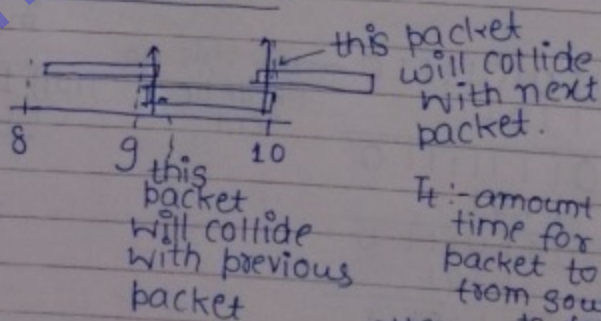 this packet
will collide
with next
packet.
8 9 10
this
packet
will collide
with previous
packet
Tt :- amount
time for
packet to
from sou